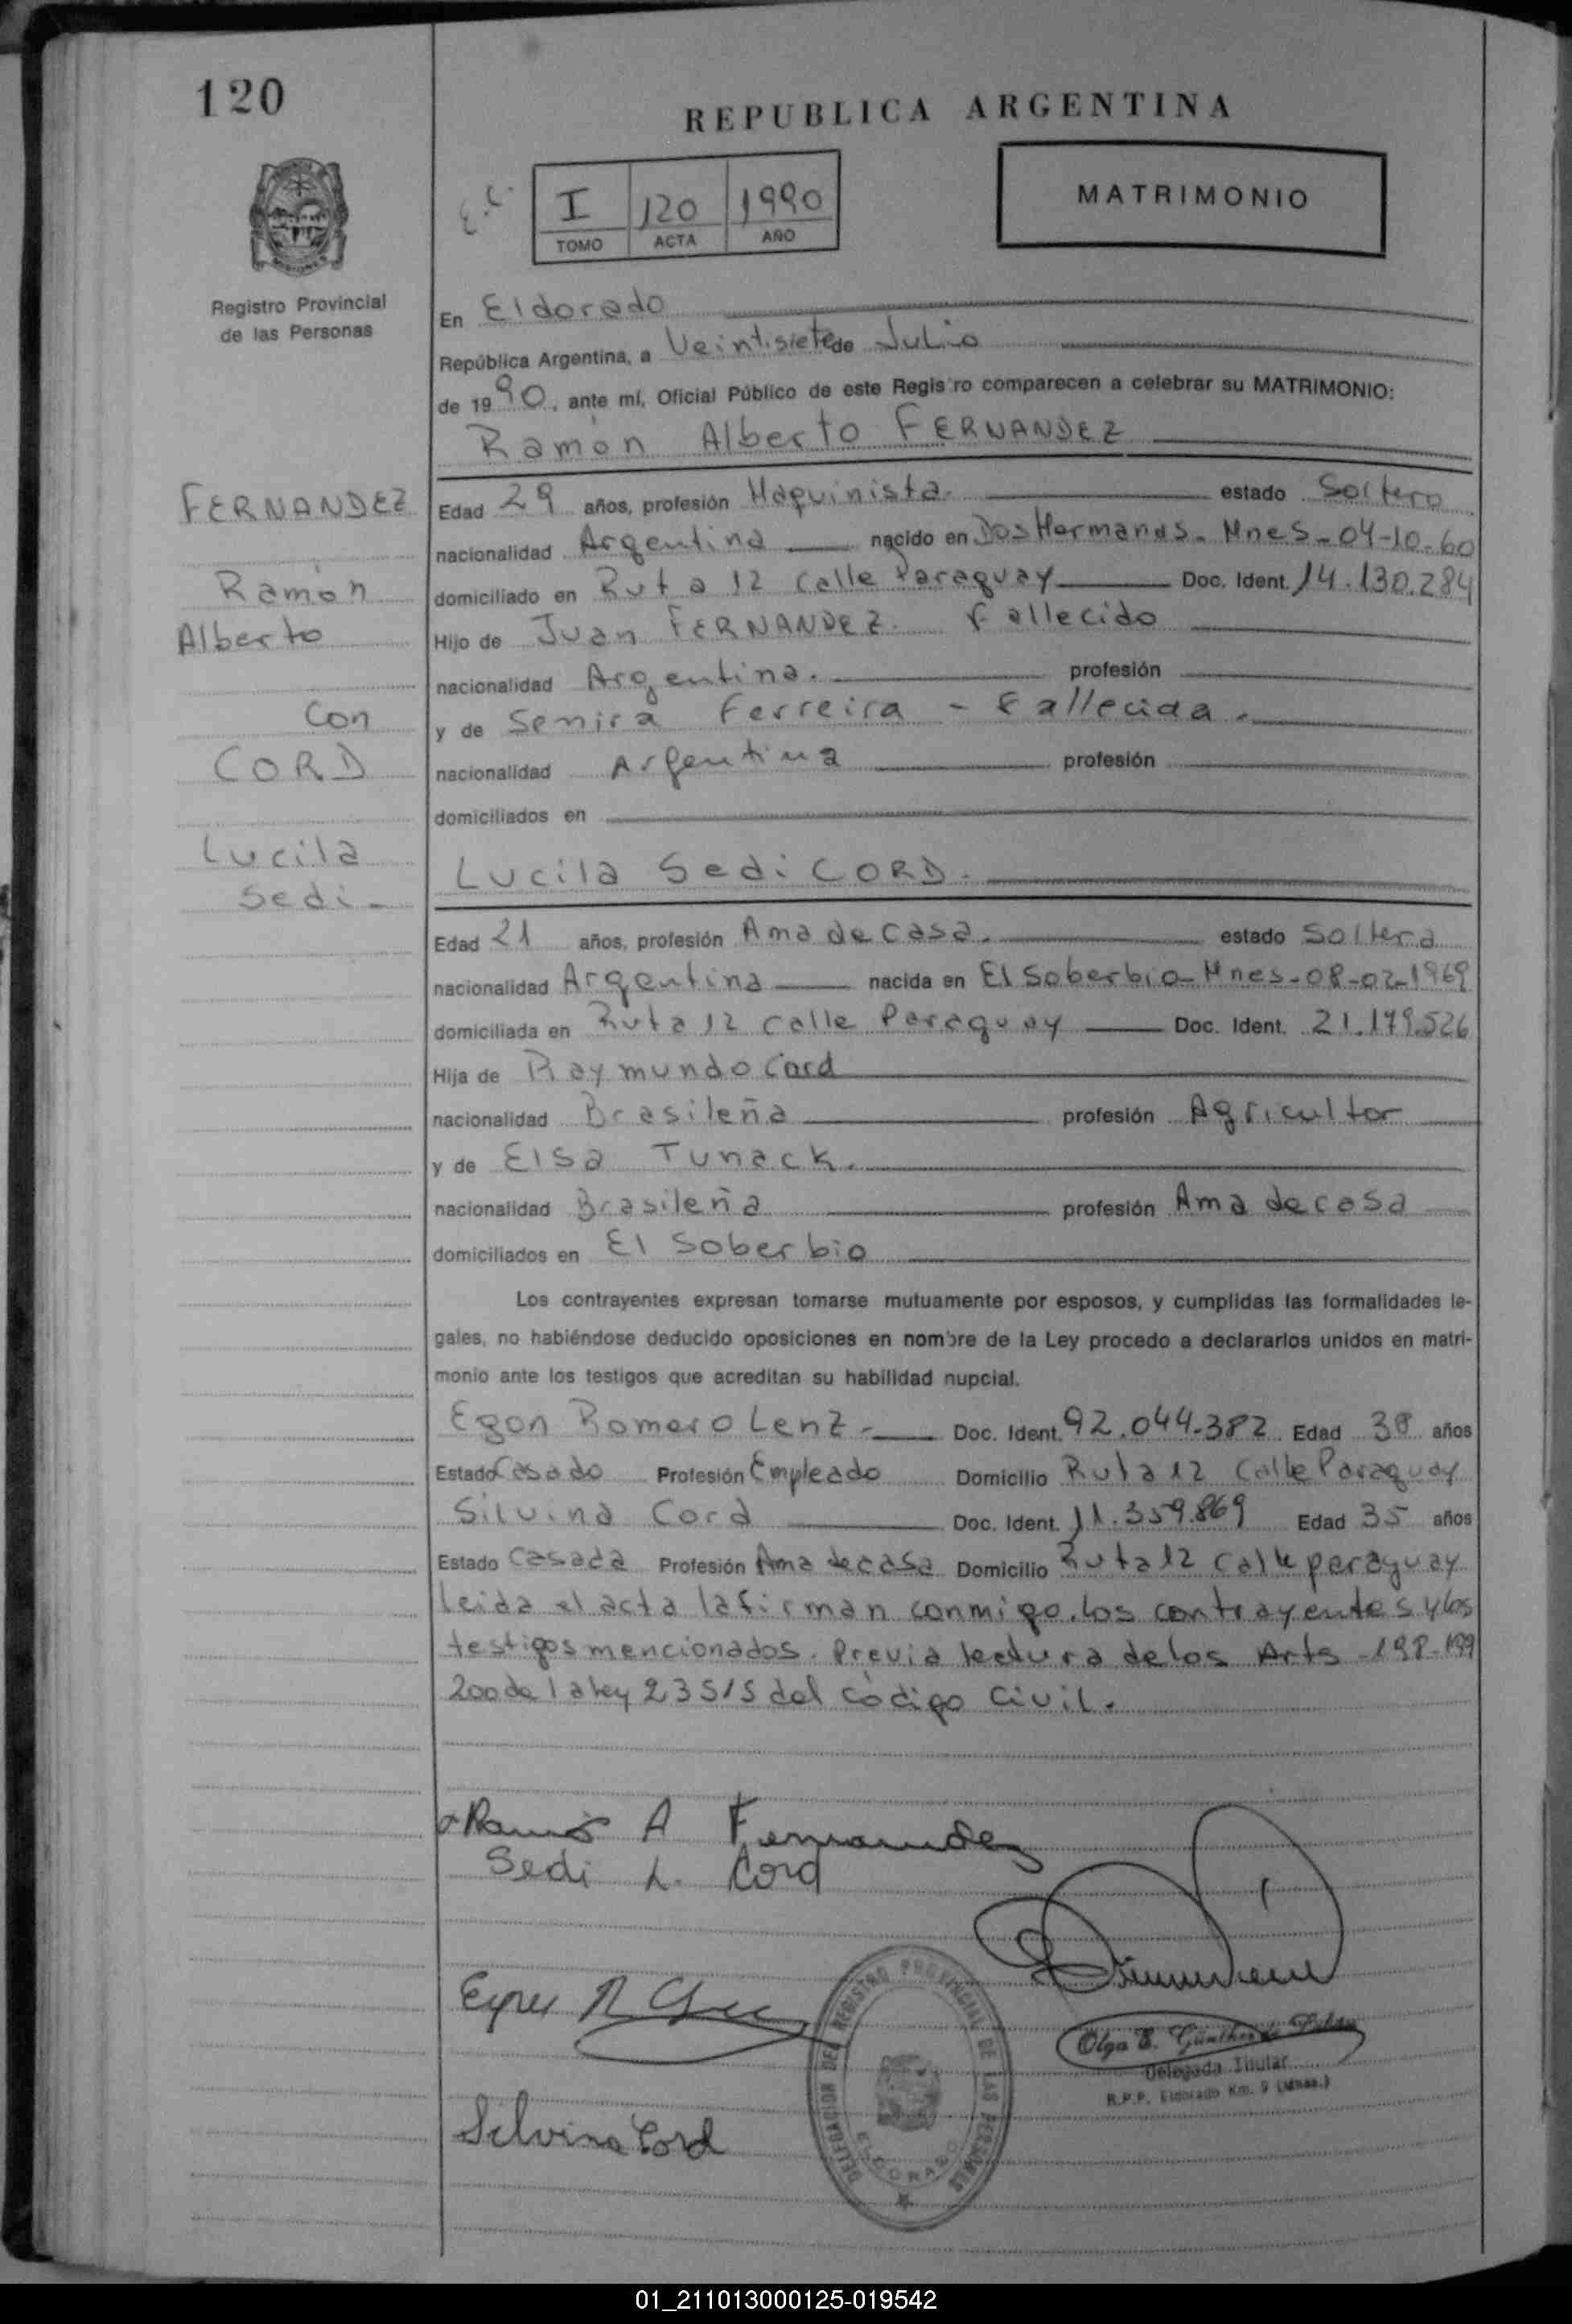 120
REPUBLICA ARGENTINA
MATRIMONIO
I 120 1990
TOMO ACTA AÑO
Registro Provincial
de las Personas
En Eldorado
República Argentina, a Veintisiete de Julio
de 1990, ante mí, Oficial Público de este Registro comparecen a celebrar su MATRIMONIO:
Ramón Alberto FERNANDEZ
FERNANDEZ
Ramón
Alberto
Con
CORD
Lucila
Sedi -
Edad 29 años, profesión Maquinista. estado Soltero
nacionalidad Argentina nacido en Dos Hermanas - Mnes - 04-10-60
domiciliado en Ruta 12 Calle Paraguay Doc. Ident. 14.130.284
Hijo de Juan FERNANDEZ. Fallecido
nacionalidad Argentina. profesión
y de Semira Ferreira - Fallecida.
nacionalidad Argentina profesión
domiciliados en
Lucila Sedi CORD.
Edad 21 años, profesión Ama de casa. estado Soltera
nacionalidad Argentina nacida en El Soberbio - Mnes - 08-02-1969
domiciliada en Ruta 12 calle Paraguay Doc. Ident. 21.179.526
Hija de Raymundo Cord
nacionalidad Brasileña profesión Agricultor
y de Elsa Tunack.
nacionalidad Brasileña profesión Ama de casa
domiciliados en El Soberbio
Los contrayentes expresan tomarse mutuamente por esposos, y cumplidas las formalidades le-
gales, no habiéndose deducido oposiciones en nombre de la Ley procedo a declararlos unidos en matri-
monio ante los testigos que acreditan su habilidad nupcial.
Egon Romero Lenz - Doc. Ident. 92.044.382 Edad 38 años
Estado Casado Profesión Empleado Domicilio Ruta 12 Calle Paraguay
Silvina Cord Doc. Ident. 11.359.869 Edad 35 años
Estado Casada Profesión Ama de casa Domicilio Ruta 12 calle paraguay
Leida el acta la firman conmigo, los contrayentes y los
testigos mencionados. Previa lectura de los Arts - 198-199
200 de la ley 23515 del código Civil.
Ramón A Fernandez
Sedi L. Cord
Silvina Cord
DELEGACION DEL REGISTRO PROVINCIAL DE LAS PERSONAS
ELDORADO
Olga E. Günther de
Delegada Titular
R.P.P. Eldorado Km. 9 (Mnes.)
01_211013000125-019542